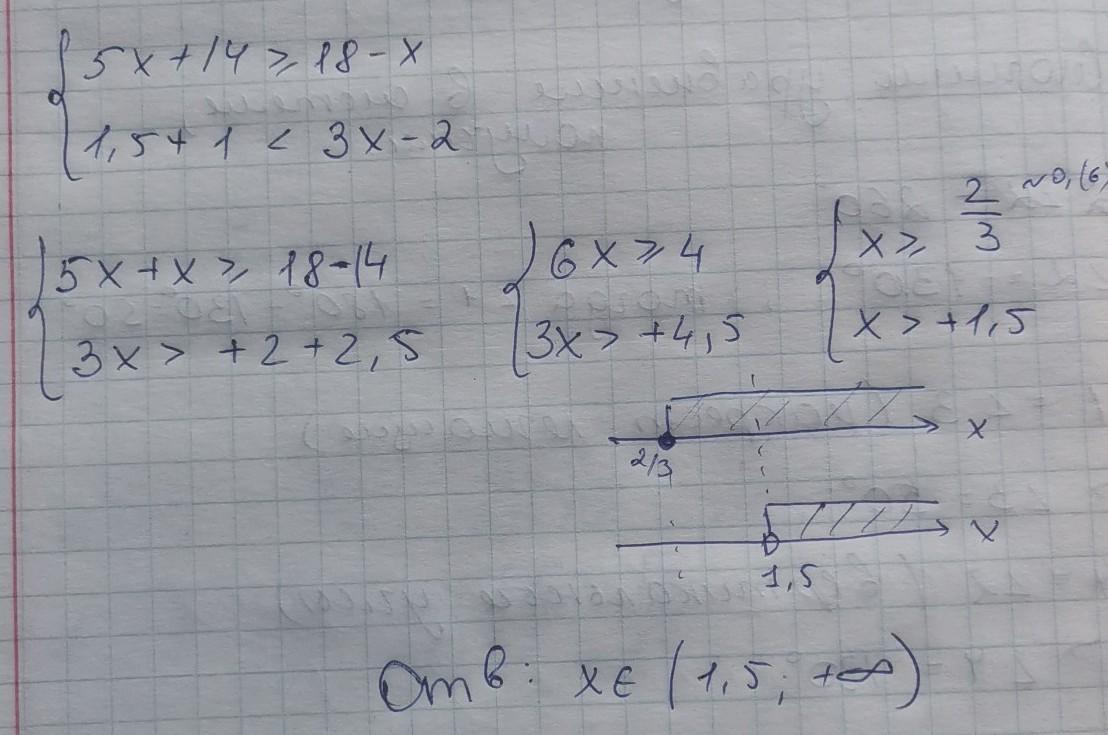 5x+14 ≥ 18-x
1,5+1 < 3x-2
5x+x ≥ 18-14
3x > +2+2,5
6x ≥ 4
3x > +4,5
x ≥ 2/3 ~0,(6)
x > +1,5
2/3 x
1,5 x
Отв: x∈(1,5; +∞)